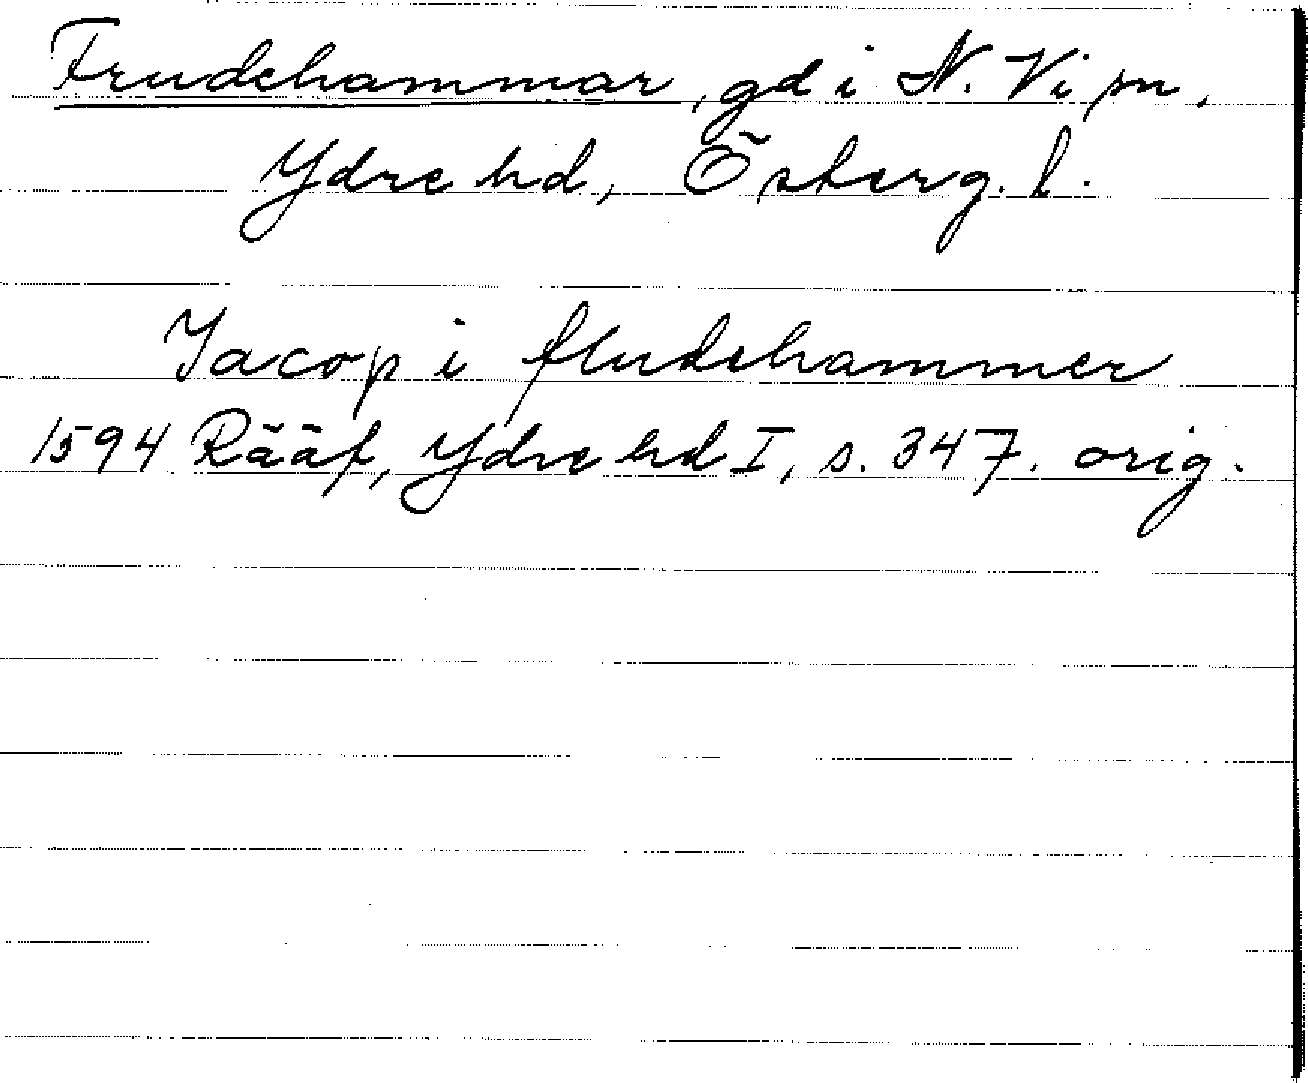 Frudehammar, gd i N. Vi sn,
Ydre hd, Österg. l.
Jacop i fludehammer
1594 Rääf, Ydre hd I, s. 347. orig.